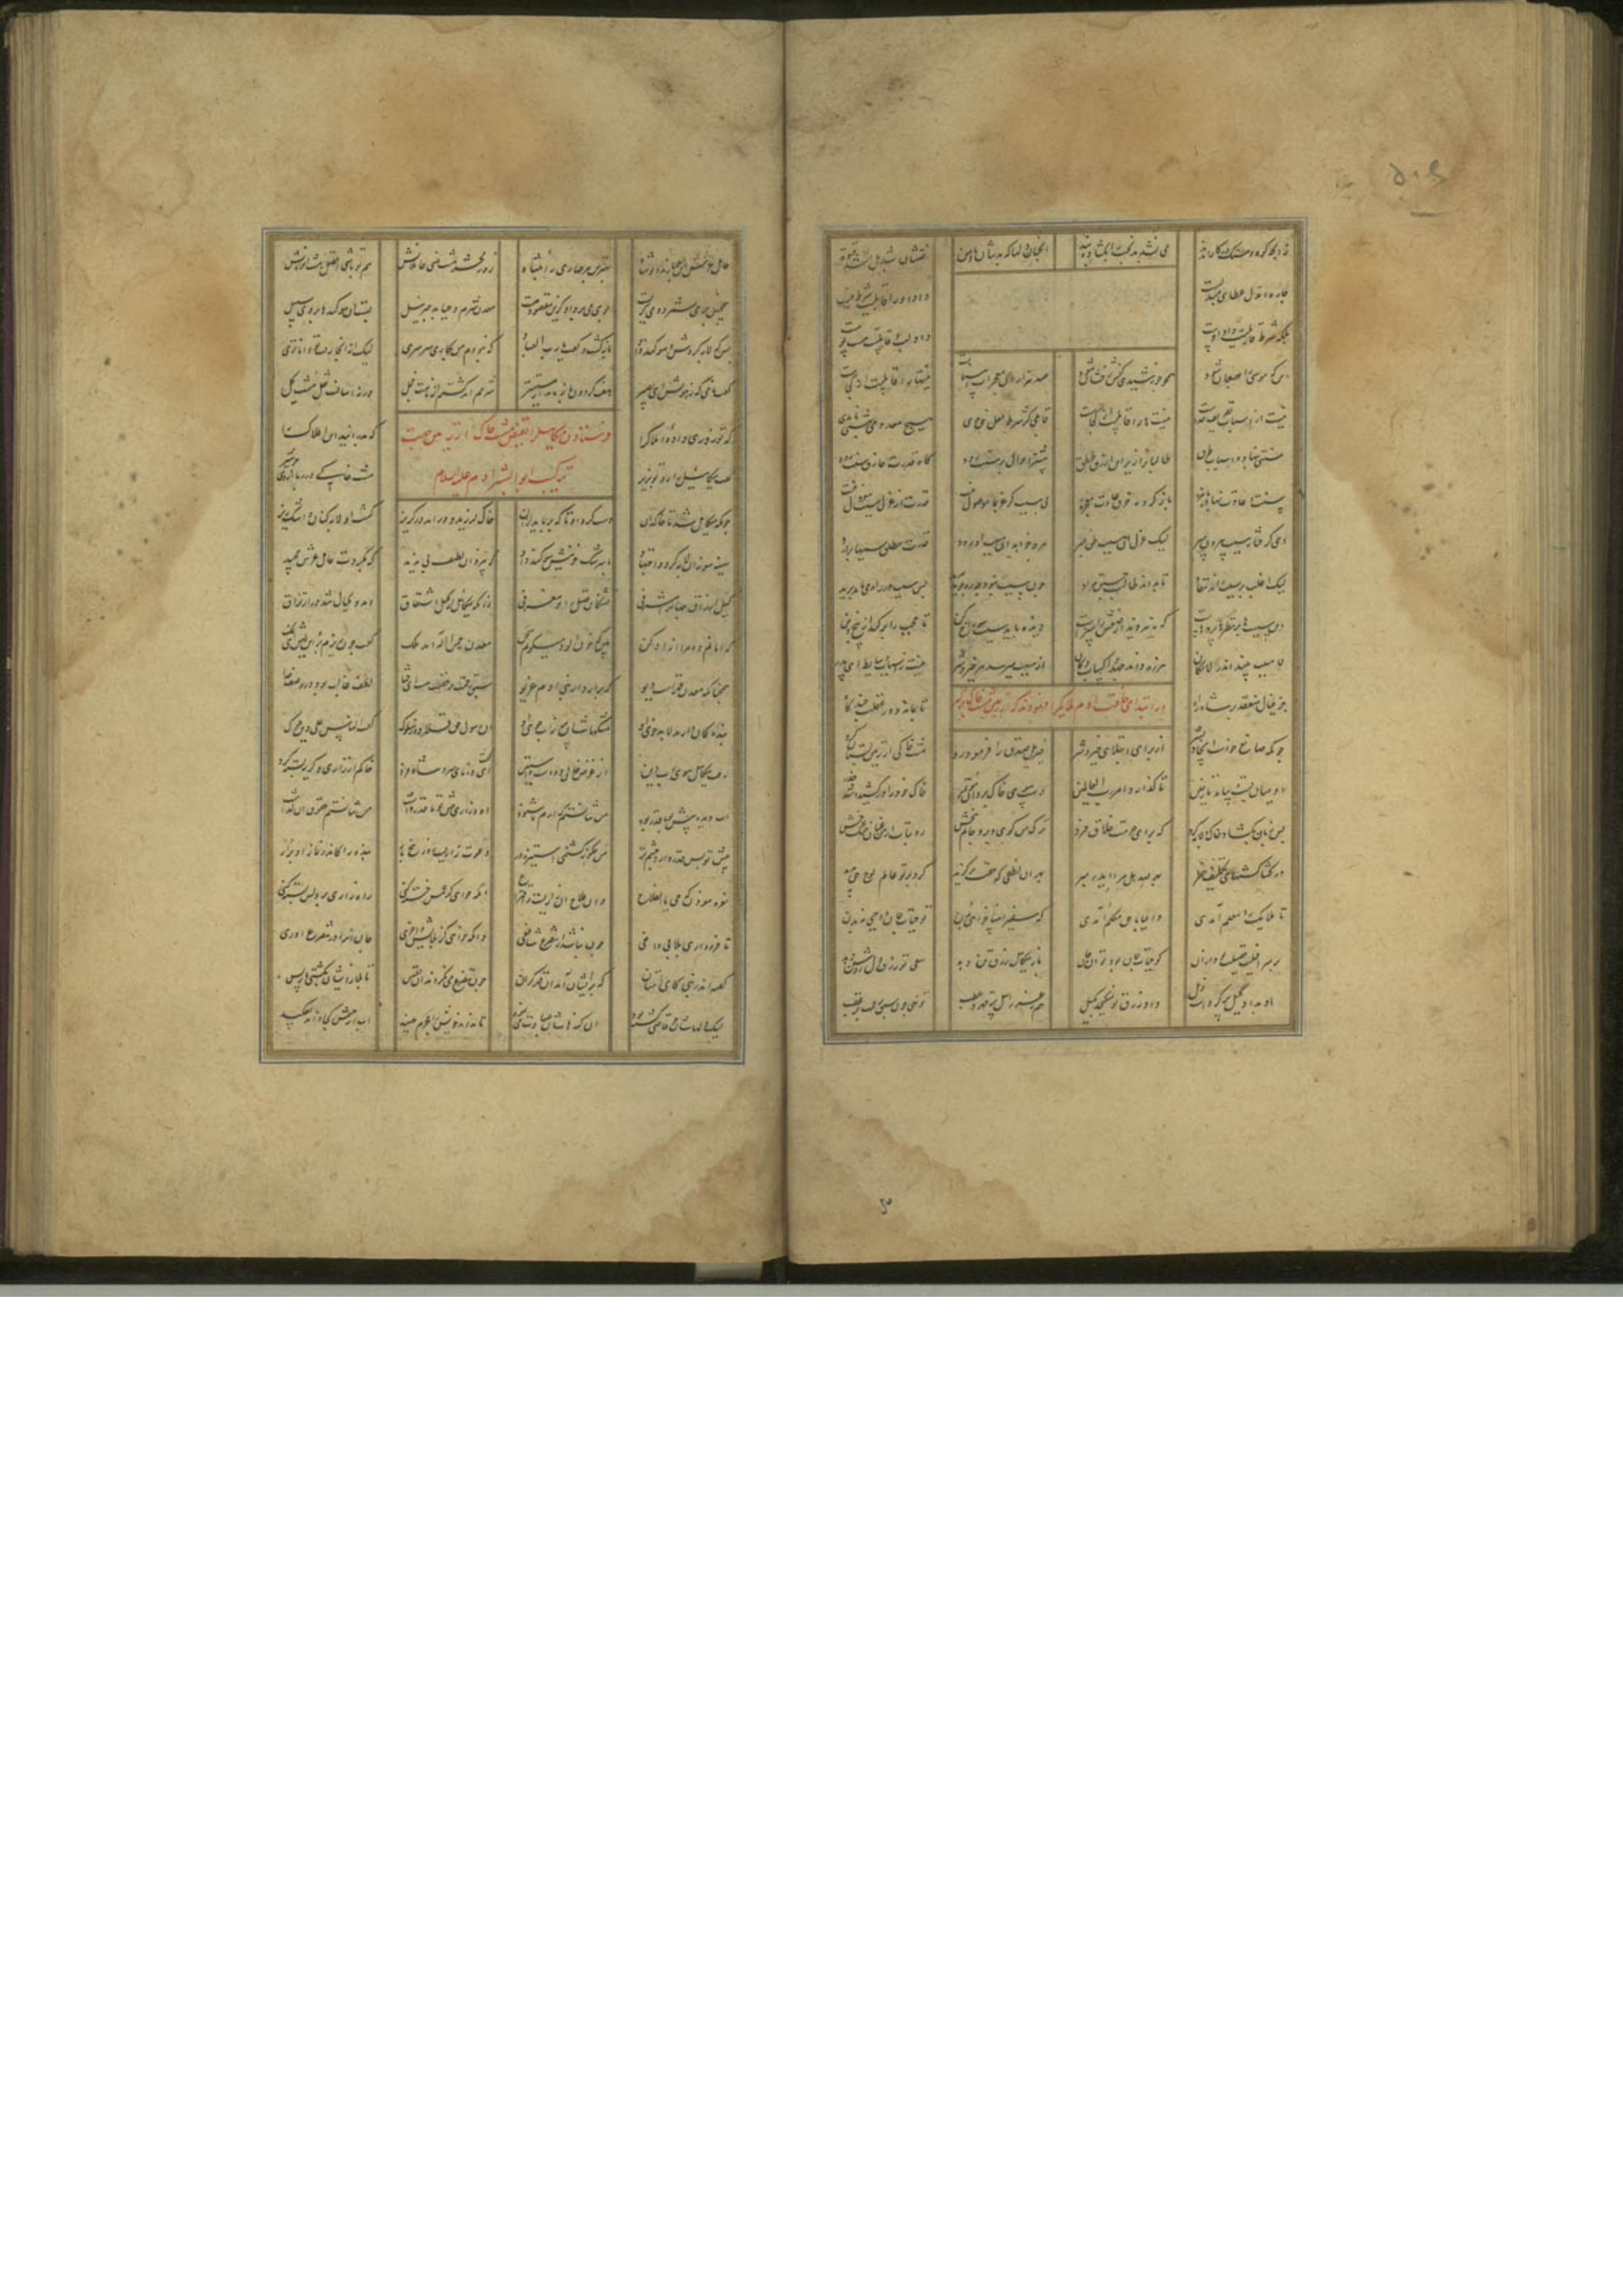 زانکه کوه و سنگ در کار آمدند می نشد بدبخت را بگشاده بند آنچنان دلها که بدشان ما و من نعتشان شد بل اشد قسوة
چاره آن دل عطای مبدلیست داد او را قابلیت شرط نیست
بلکه شرط قابلیت داد اوست داد لب و قابلیت هست پوست
اینکه موسی را عصا ثعبان شود همچو خورشیدی کفش رخشان شود صد هزاران معجزات انبیا
نیست از اسباب تصریف خداست نیستها را قابلیت از کجاست قابلی گر شرط فعل حق بدی هیچ معدومی بهستی نامدی
سنتی بنهاد و اسباب و طرق طالبان را زیر این ازرق تتق بیشتر احوال بر سنت رود گاه قدرت خارق سنت شود
سنت و عادت نهاده با مزه باز کرده خرق عادت معجزه بی سبب گر عز بما موصول نیست قدرت از عزل سبب معزول نیست
ای گرفتار سبب بیرون مپر لیک عزل آن مسبب ظن مبر هر چه خواهد آن مسبب آورد قدرت مطلق سببها بر درد
لیک اغلب بر سبب راند نفاذ تا بداند طالبی جستن مراد چون سبب نبود چه ره جوید مرید پس سبب در راه می باید پدید
این سببها بر نظرها پرده هاست که نه هر دیدار صنعش را سزاست دیده باید سبب سوراخ کن تا حجب را بر کند از بیخ و بن
تا مسبب بیند اندر لامکان هرزه داند جهد و اکساب و دکان از مسبب میرسد هر خیر و شر نیست اسباب و وسایط ای پدر
جز خیالی منعقد بر شاه راه تا بماند دور غفلت چند گاه
در ابتدای خلقت آدم
چونکه صانع خواست ایجاد بشر از برای ابتلای خیر و شر جبرئیل صدق را فرمود رو مشت خاکی از زمین بستان گرو
او میان بست و بیامد تا زمین تا گذارد امر رب العالمین دست سوی خاک برد آن مؤتمر خاک خود را در کشید و شد حذر
پس زبان بگشاد خاک و لابه کرد که برای حرمت خلاق فرد ترک من گوی و برو جانم ببخش رو بتاب از من عنان خنگ رخش
در کشاکشهای تکلیف و خطر بهر لله هل مرا اندر مبر بهر آن لطفی که حقت بر گزید کرد بر تو علم لوح کل پدید
تا ملایک را معلم آمدی دایما با حق مکلم آمدی که سفیر انبیا خواهی بدن تو حیات جان وحیی نی بدن
بر سرافیلت فضیلت بود از آن کو حیات تن بود تو آن جان باز میکائیل رزق تن دهد سعی تو رزق دل روشن دهد
او بداد کیل پر کردست ذیل داد رزق تو نمی گنجد بکیل هم ز عزرائیل با قهر و عطب تو بهی چون سبق رحمت بر غضب
حامل عرش این چهارند و تو شاه بهترین هر چهاری ز انتباه روز محشر هشت بینی حاملانش هم تو باشی افضل هشت آن زمانش
همچنین بر می شمرد و می گریست بوی می برد او کزین مقصود چیست معدن شرم و حیا بد جبرئیل بست آن سوگندها بر وی سبیل
بس که لابه کردش و سوگند داد بازگشت و گفت یا رب العباد که نبودم من بکارت سرسری لیک از آنچه رفت تو داناتری
گفت نامی که ز هولش ای بصیر هفت گردون باز ماند از مسیر شرمم آمد گشتم از نامت خجل ورنه آسانست نقل مشت گل
که تو زوری داده املاک را که بدرانند این افلاک را
فرستادن میکائیل را بقبض مشت خاک از زمین جهت
ترکیب ابو البشر آدم علیه السلام
گفت میکائیل را تو رو بزیر مشت خاکی در ربا از وی چو شیر
چونکه میکائیل شد تا خاکدان دست کرد او تا که برباید از آن خاک لرزید و درآمد در گریز گشت او لابه کنان و اشک ریز
سینه سوزان لابه کرد و اجتهاد با سرشک خونین سوگند داد که بیزدان لطیف بی ندید که بکردت حامل عرش مجید
کیل ارزاق جهان را مشرفی تشنگان فضل را تو مغرفی زانکه میکائیل از کیل اشتقاق دارد و کیال شد در ارتزاق
که امانم ده مرا آزاد کن بین که خون آلود میگویم سخن معدن رحم اله آمد ملک گفت چون ریزم بر آن ریش این نمک
همچنانکه معدن قهرست دیو که برآورد از بنی آدم غریو سبق رحمت بر غضب هست ای فتا لطف غالب بود در وصف خدا
بندگان دارند لابد خوی او مشکهاشان پر ز آب جوی او آن رسول حق قلاوز سلوک گفت الناس علی دین الملوک
رفت میکائیل سوی رب دین از غرض خالی دو دست و آستین گفت ای دانای سر و شاه فرد خاکم از زاری و گریه بسته کرد
آب دیده پیش تو با قدر بود من نتانستم که آرم ناشنود آه و زاری پیش تو بس قدر داشت من نتانستم حقوق آن گذاشت
پیش تو بس قدر دارد چشم تر من چگونه گشتمی استیزه گر دعوت زاریست روزی پنج بار بنده را که در نماز آ و بزار
نعره مؤذن که حی علی الفلاح وان فلاح این زاریست و اقتراح آنکه خواهی کز غمش خسته کنی راه زاری بر دلش بسته کنی
تا فرود آید بلا بی دافعی چون نباشد از تضرع شافعی وانکه خواهی کز بلایش وا خری جان او را در تضرع آوری
گفته اندر نبی کان امتان که بر ایشان آمد آن قهر گران چون تضرع می نکردند آن نفس تا بلا ز ایشان بگشتی باز پس
لیک دلهاشان چو قاسی گشته بود آن گنهاشان عبادت مینمود تا نداند خویش را مجرم عنید آب از چشمش کجا داند دوید